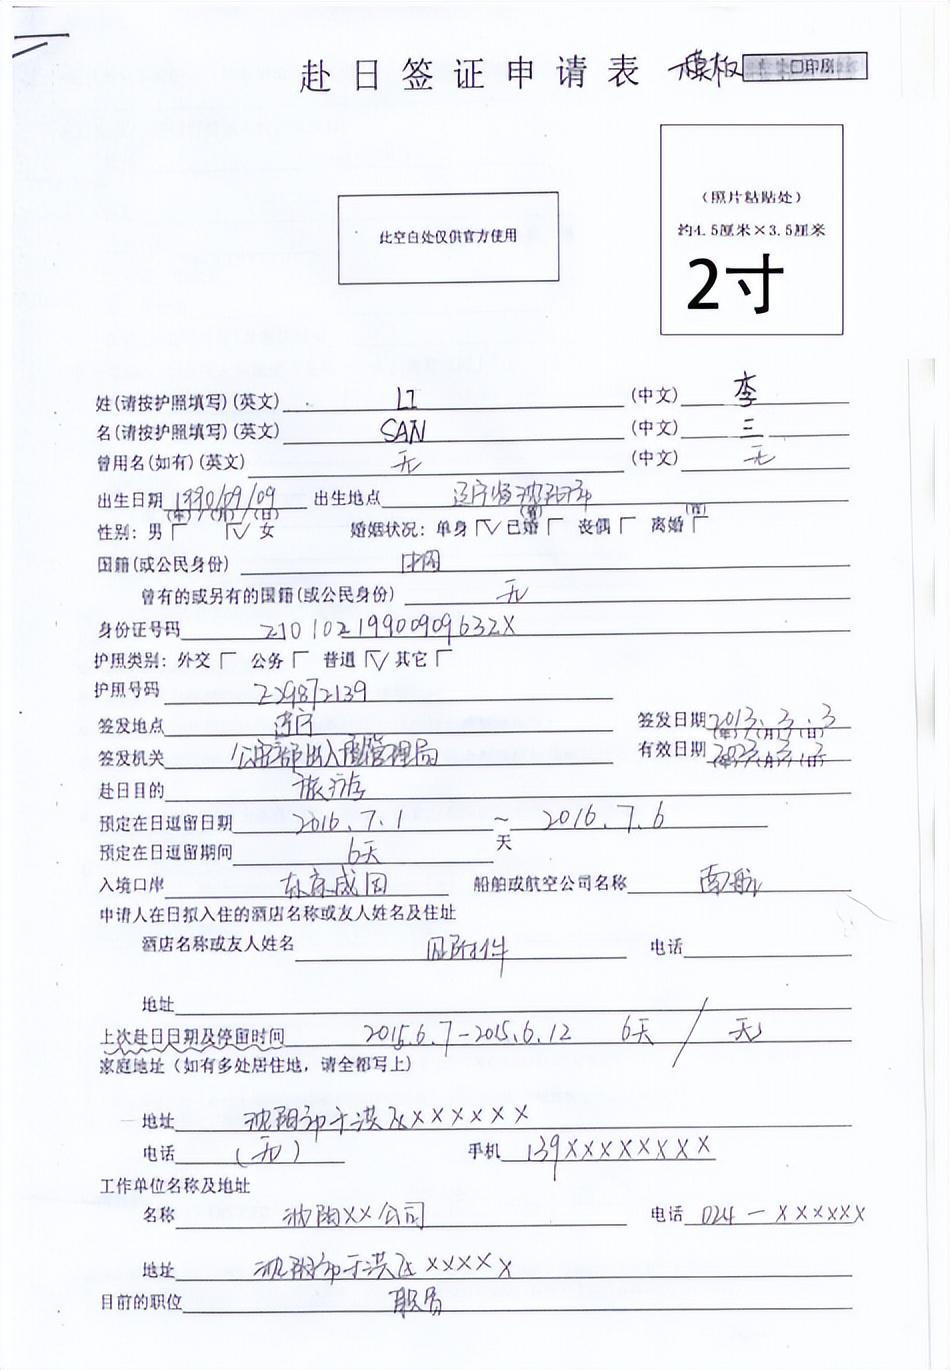 赴日签证申请表 模版 印刷
(照片粘贴处)
约4.5厘米×3.5厘米
2寸
此空白处仅供官方使用
姓(请按护照填写)(英文) LI (中文) 李
名(请按护照填写)(英文) SAN (中文) 三
曾用名(如有)(英文) 无 (中文) 无
出生日期 1990/09/09 出生地点 辽宁省沈阳市
(年)/(月)/(日) (省) (市)
性别: 男 √ 女 婚姻状况: 单身 √ 已婚 丧偶 离婚
国籍(或公民身份) 中国
曾有的或另有的国籍(或公民身份) 无
身份证号码 21010219900909632X
护照类别: 外交 公务 普通 √ 其它
护照号码 229872139
签发地点 辽宁 签发日期 2013.3.3
(年)/(月)/(日)
签发机关 公安部出入境管理局 有效日期 2023.3.3
(年)/(月)/(日)
赴日目的 旅游
预定在日逗留日期 2016.7.1 ~ 2016.7.6
预定在日逗留期间 6天 天
入境口岸 东京成田 船舶或航空公司名称 南航
申请人在日拟入住的酒店名称或友人姓名及住址
酒店名称或友人姓名 见附件 电话
地址
上次赴日日期及停留时间 2015.6.7-2015.6.12 6天 / 无
家庭地址(如有多处居住地,请全部写上)
地址 沈阳市于洪区XXXXXXX
电话 (无) 手机 139XXXXXXXX
工作单位名称及地址
名称 沈阳XX公司 电话 024-XXXXXX
地址 沈阳市于洪区XXXXX
目前的职位 职员